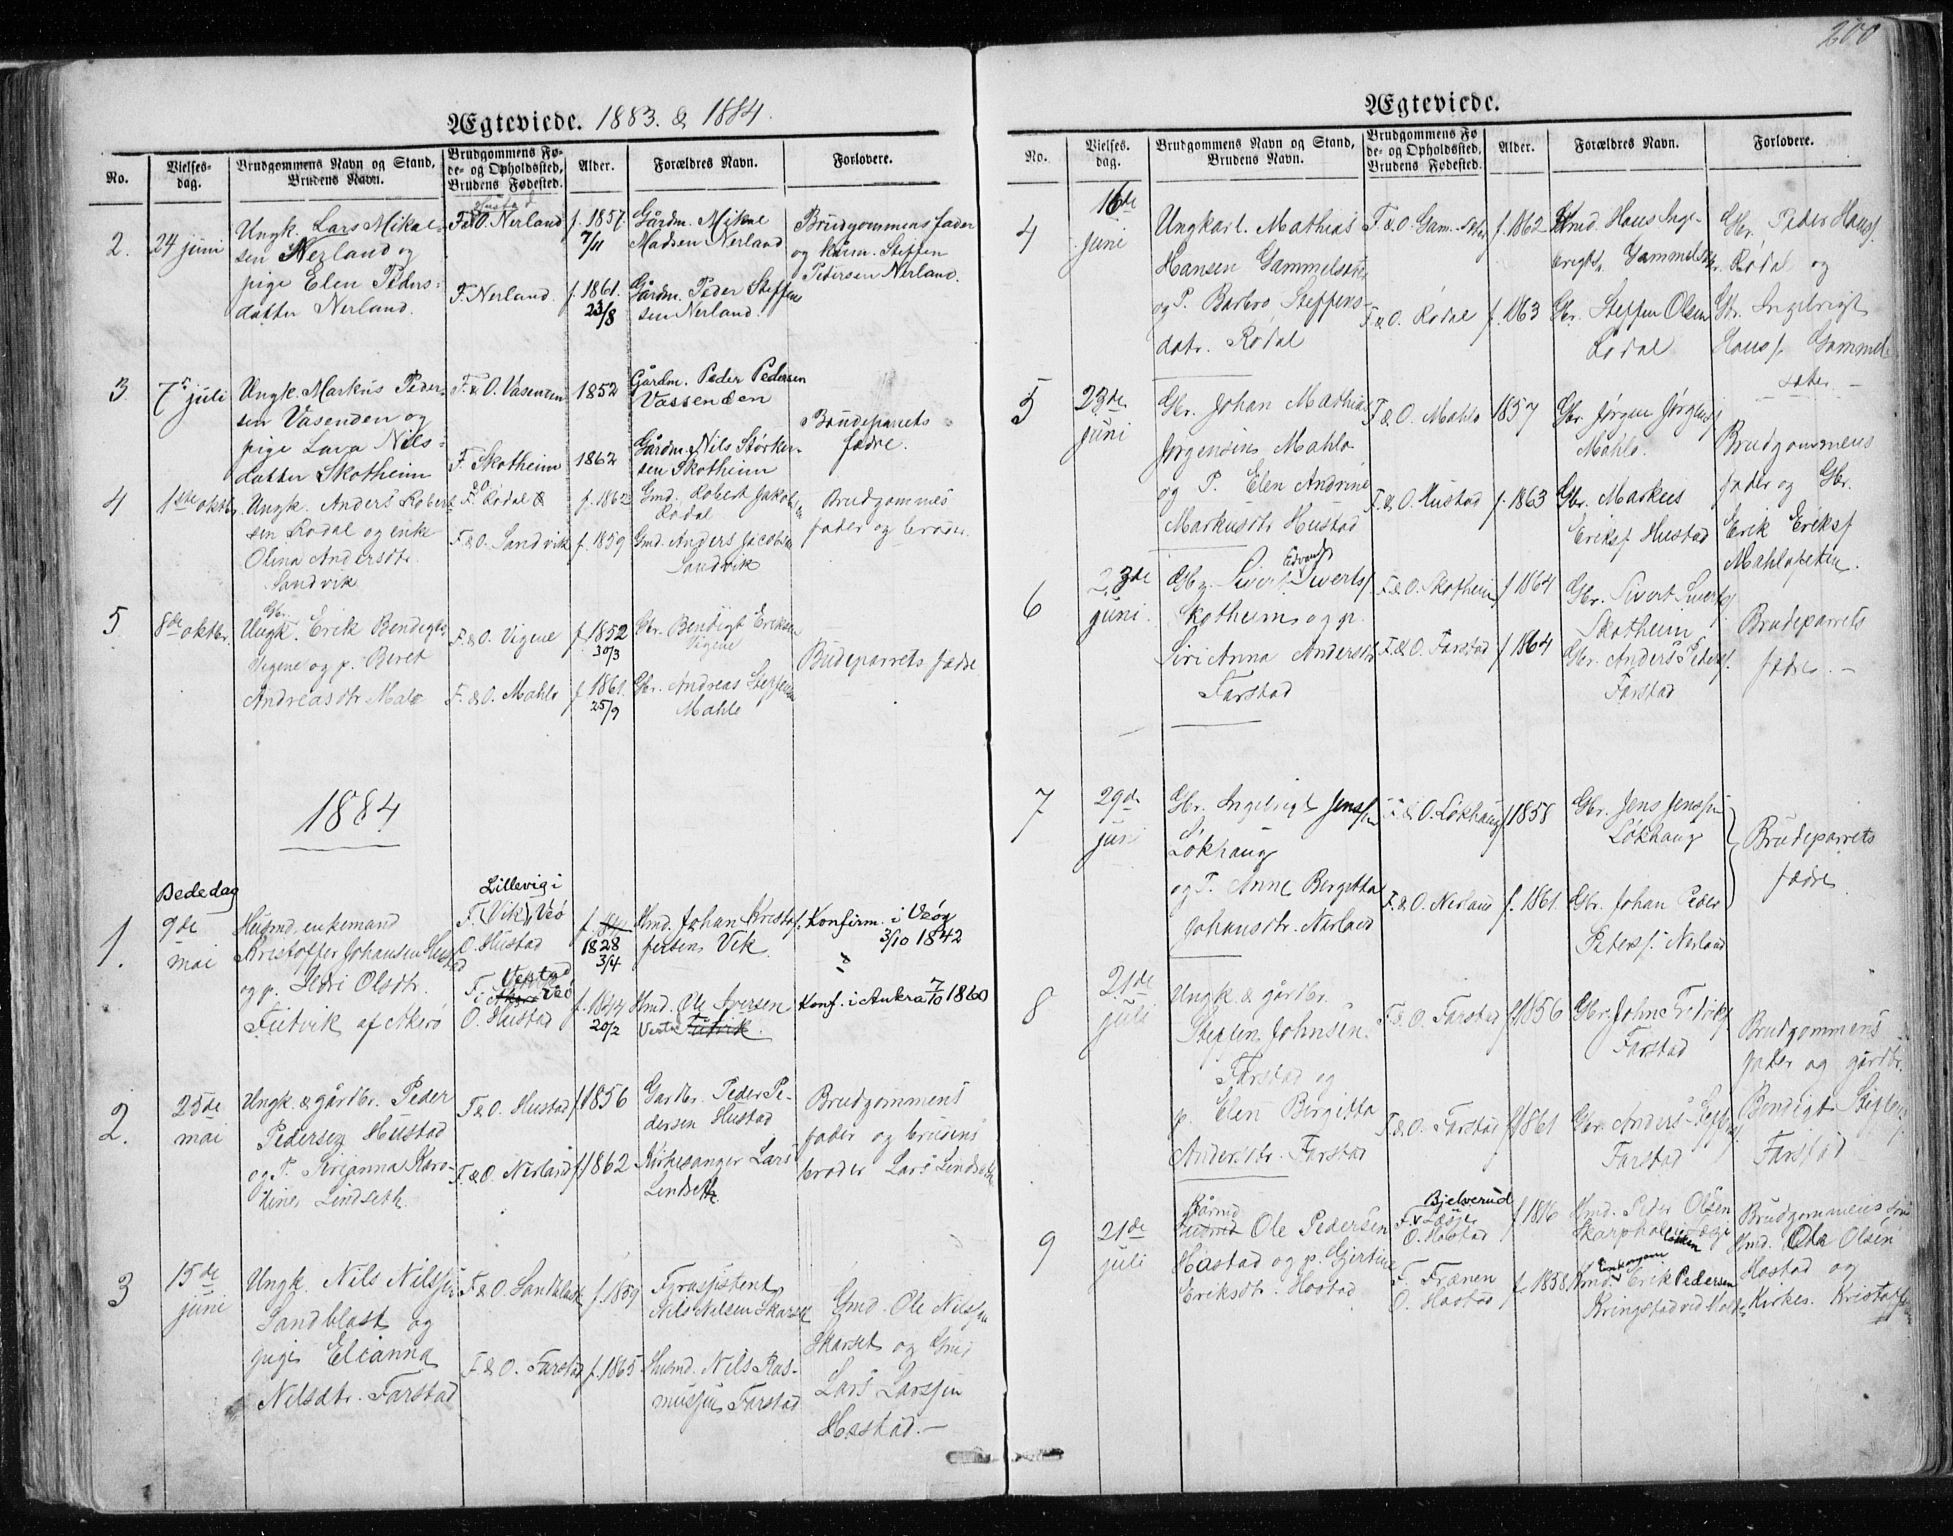 Ægteviede. 1883. & 1884.
No.
Vielses-
dag.
Brudgommens Navn og Stand,
Brudens Navn.
Brudgommens Fø-
de- og Opholdssted,
Brudens Fødested.
Alder.
Forældres Navn.
Forlovere.
2.
24 juni
Ungk. Lars Mikal-
sen Nerland og
pige Elen Peders-
datter Nerland.
Hustad
F&O. Nerland
F. Nerland.
f. 1857
7/11
f. 1861.
23/8
Gårdm. Mikal
Madsen Nerland
Gårdm. Peder Steffen
sen Nerland.
Brudgommens fader
og Steffen
Pedersen Nerland.
3.
7de juli
Ungk. Markus Peder-
sen Vasenden og
pige Lava Nils-
datter Skotheim
F.&O. Vasenden
F. Skotheim
1852
1862
Gårdm. Peder Pedersen
Vassenden
Gårdm. Nils Størker-
sen Skotheim
Brudeparrets
fædre.
4
1ste oktbr
Ungk. Anders Robert-
sen Rødal og enke
Olina Andersdtr.
Sandvik
F. Rødal
F&O. Sandvik
f. 1862
f. 1859
Gmd. Robert Jakobsen
Rødal
Gmd. Anders Jacobsen
Sandvik
Brudgommes
fader og broder.
5.
8de oktbr.
Gbr.
Ungk. Erik Bendigts.
Vigene og p. Beret
Andreasdtr Male
F.&O. Vigene
F.&O. Mahle
f. 1852
30/3
f. 1861.
25/9
Gbr. Bendigt Eriksen
Vigene
Gbr. Andreas Steffensen
Mahle
Budeparrets fædre
1884
1.
Bededag
9de
mai
Husmd. enkemand
Kristoffer Johansen Hustad
og p. Sedri Olsdtr.
af Akerø
Lillevig i
F. (Vik) Veø
O. Hustad
F. Vestad
i Akerø Veø
O. Hustad
1828
3/4
f. 1844
20/2
Hmd. Johan Kristof-
fersens Vik
Hmd. Ole Iversen
Konfirm. i Veøy
3/10 1842
Konf. i Aukra 7/10 1860
2.
25de
mai
Ungk. & gårdbr. Peder
Pedersen Hustad
og P. Sirianna Karo-
line Lindseth.
F&O. Hustad
F.&O. Nerland
f. 1856
f. 1862
Gardbr. Peder Pe-
dersen Hustad
Kirkesanger Lars
Lindseth
Brudgommens
fader og brudens
broder Lars Lindseth
3
15de
juni
Ungk. Nils Nilssen
Sandblast og
pige Elianna
Nilsdtr. Farstad
F.&O. Sandblast
F.&O. Farstad
f. 1859
f. 1865
Fyrassistent
Nils Nilsen Skarset
Husmd. Nils Ras-
mussen Farstad
Gmd. Ole Nilssen
Skarset og Gmd
Lars Larssen
Hostad.-
200
Ægteviede.
No.
Vielses-
dag.
Brudgommens Navn og Stand,
Brudens Navn.
Brudgommens Fø-
de- og Opholdssted
Brudens Fødested.
Alder.
Forældres Navn.
Forlovere.
4
16de
juni
Ungkarl. Mathias
Hansen Gammelsæter
og P. Barbro Steffens-
datr. Rødal
F&O. Gam.
F&O. Rødal
f. 1862
f. 1863
Gmd. Hans Inge-
brigts. Gammelsæter
Gbr. Steffen Olsen
Rødal
Gbr. Peder Hanss.
Rødal og
Gbr. Ingebrigt
Hanss. Gammel-
sæter. -
5
23de
juni
Gbr. Johan Mathias
Jørgensens Mahle
og P. Elen Andrine
Markusdtr Hustad
F&O. Mahle
F.&O. Hustad
1857
f. 1863
Gbr. Jørgen Jørgens.
Mahle.
Gbr. Markus
Eriks. Hustad
Brudgommens
fader og Gbr.
Erik Eriks.
6
23de
juni.
Gbr. Sivert Edvard Siverts.
Skotheims og p.
Siri Anna Andersdtr
Farstad
F.&O. Skotheim
F.&O. Farstad
f 1864
f 1864
Gbr. Sivert Siverts.
Skotheim
Gbr. Anders Peders.
Farstad
Brudeparrets
fædre. -
7
29de
juni
Gbr. Ingebrigt Jenssen
Løkhaug
og P. Anne Bergitta
Johansdtr. Nerland
F.&O. Løkhaug
F.&O. Nerland
f 1858
f. 1861.
Gbr. Jens Jenssen
Løkhaug
Gbr. Johan Peder
Peters. Nerland
Brudeparrets
fædre.
8
21de
juli
Ungk. & gårdbr.
Steffen Johnsen.
Farstad og
p. Elen Birgitta
Andersdtr. Farstad
F.&O. Farstad
F&O. Farstad
f 1856
f 1861
Gbr. John Fredriks.
Farstad
Gbr. Anders Steffens.
Farstad
Brudgommens
fader og gårdbr.
Bendigt Steffens.
Farstad
9
21de
juli
Ole Pedersen
Hostad og p. Gjertine
Eriksdtr. Hostad
Bjelverud
F. Læsje
O. Hostad
F. Frænen
O. Hostad
f 1816
f. 1858
Hmd. Peder Olsen
Læsje
Hmd Erik Pedersen
Kringstad ved Molde
Brudgommens søn
Hmd. Ole Olsen
Hostad og
Kirkes. Kristoffersen